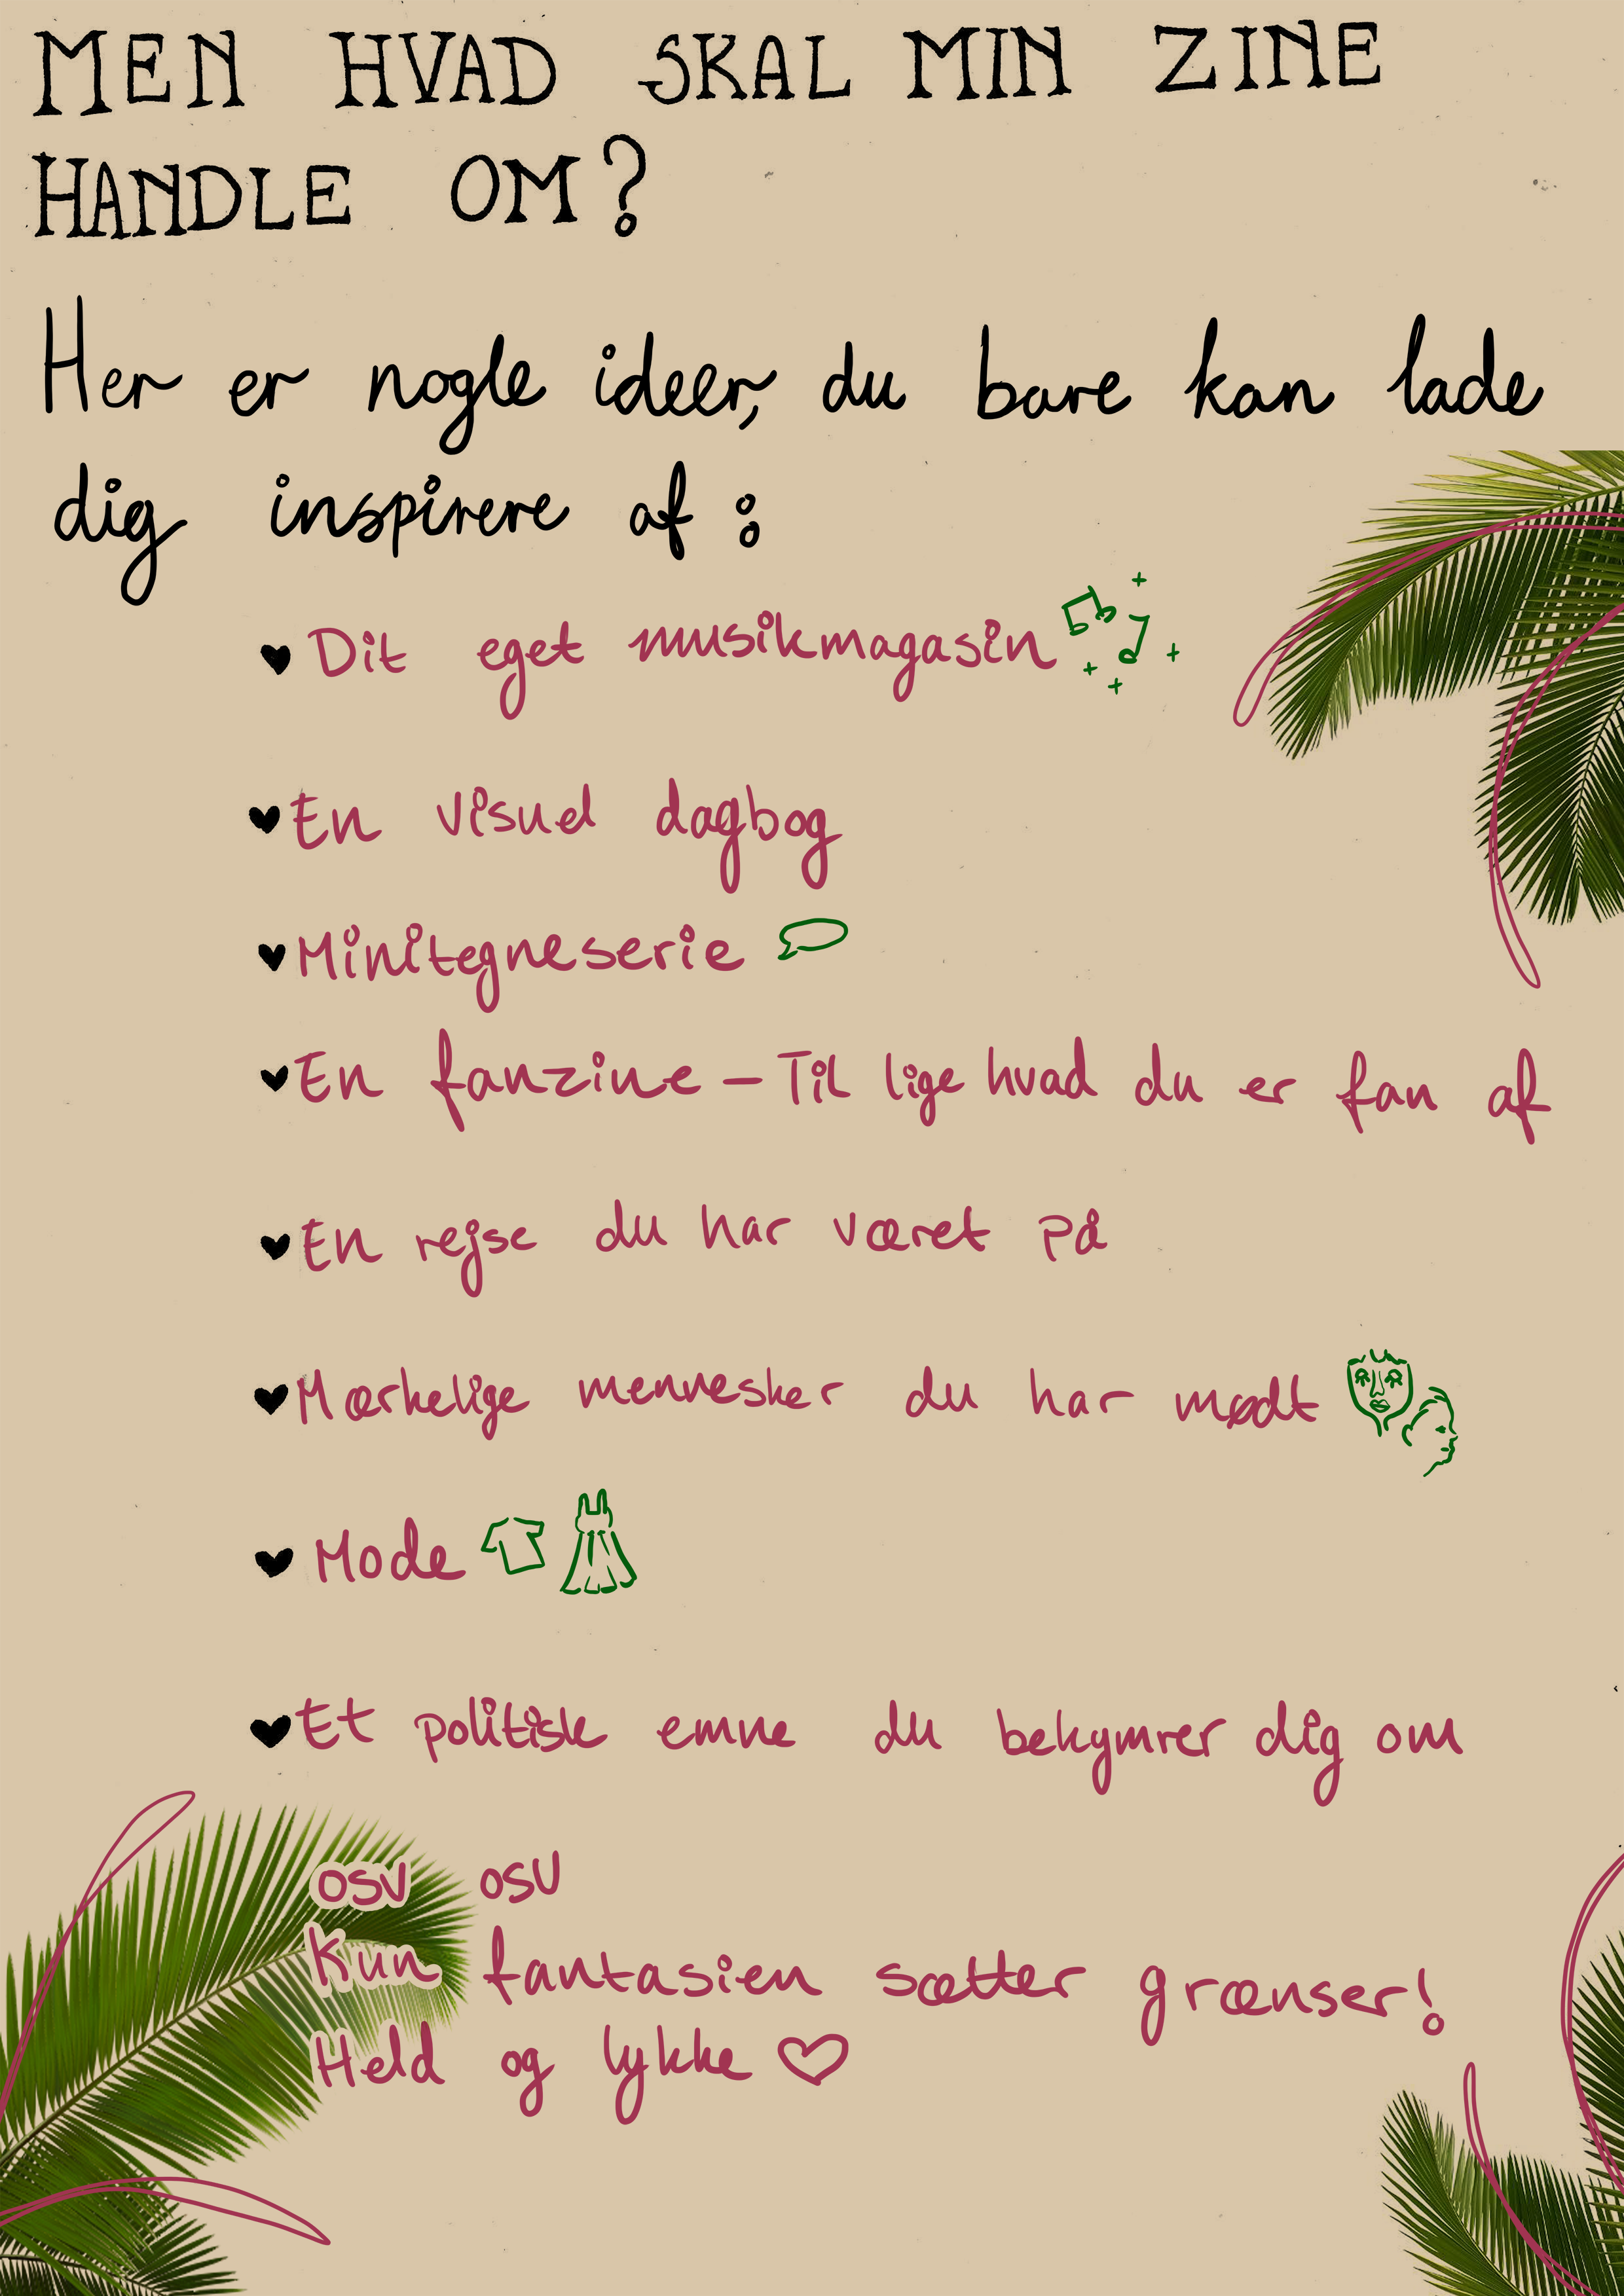 MEN HVAD SKAL MIN ZINE
HANDLE OM?
Her er nogle ideer, du bare kan lade
dig inspirere af :
♥ Dit eget musikmagasin
♥ En visuel dagbog
♥ Minitegneserie
♥ En fanzine – Til lige hvad du er fan af
♥ En rejse du har været på
♥ Mærkelige mennesker du har mødt
♥ Mode
♥ Et politisk emne du bekymrer dig om
osv osv
Kun fantasien sætter grænser!
Held og lykke ♡